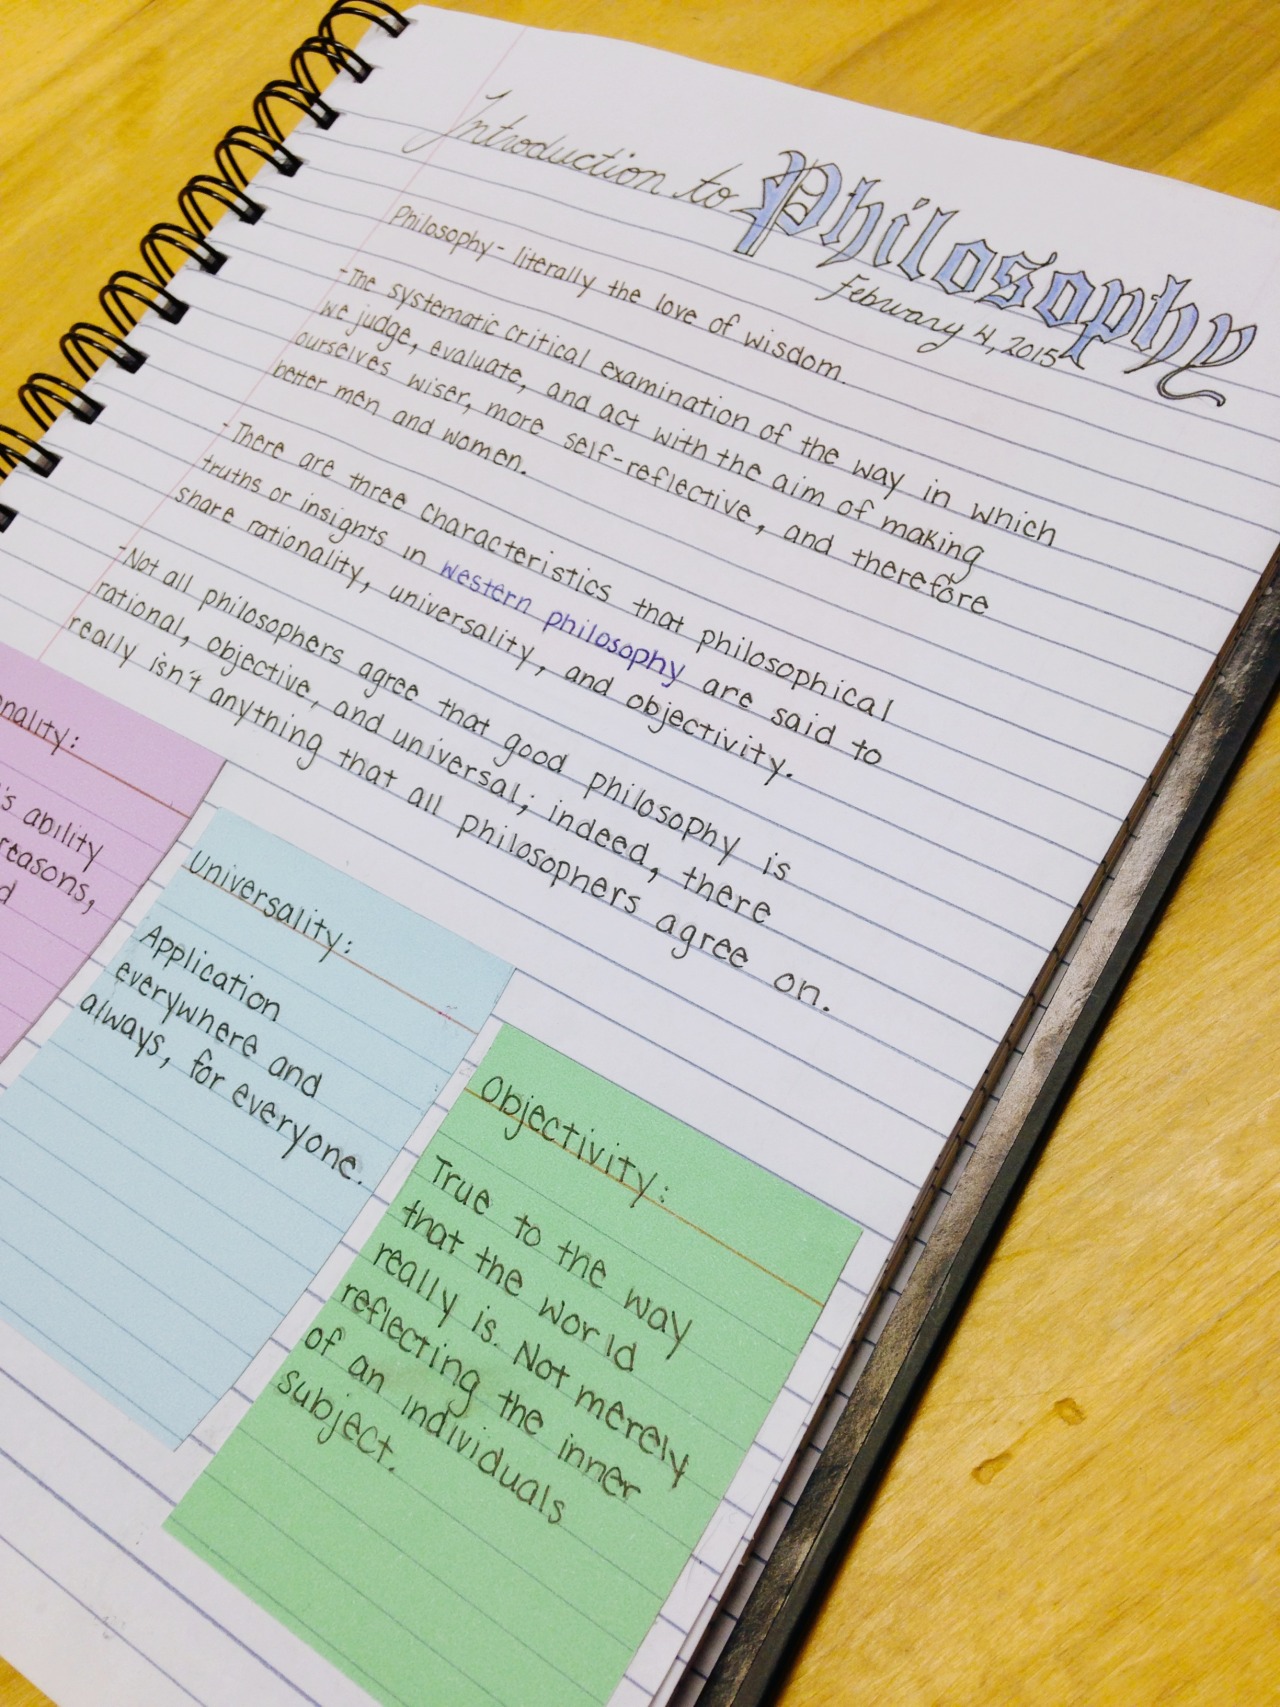 Introduction to Philosophy
February 4, 2015
Philosophy - literally the love of wisdom.
-The systematic critical examination of the way in which
we judge, evaluate, and act with the aim of making
ourselves wiser, more self-reflective, and therefore
better men and women.
-There are three characteristics that philosophical
truths or insights in western philosophy are said to
share rationality, universality, and objectivity.
-Not all philosophers agree that good philosophy is
rational, objective, and universal; indeed, there
really isn't anything that all philosophers agree on.
onality:
's ability
reasons,
d
Universality:
Application
everywhere and
always, for everyone.
Objectivity:
True to the way
that the world
really is. Not merely
reflecting the inner
of an individuals
subject.